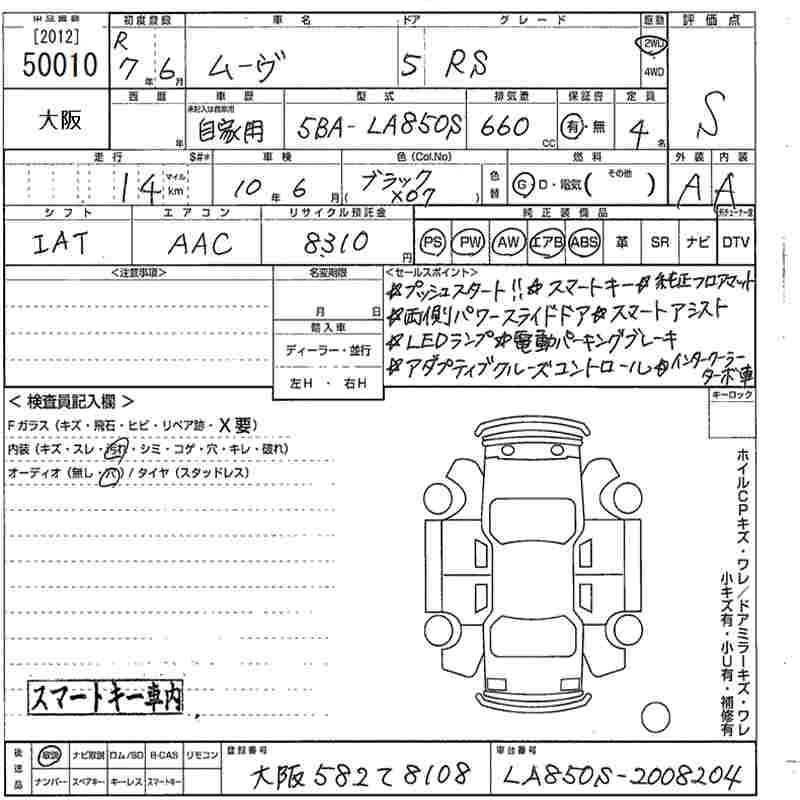 [2012]
50010
初度登録
R
7年 6月
車名
ムーヴ
ドア
5
グレード
RS
駆動
2WD
4WD
評価点
S
大阪
西暦
年
車歴
未記入は自家用
自家用
型式
5BA-LA850S
排気量
660 CC
保証書
有・無
定員
4名
走行
14
マイル
km
S#*
車検
10年 6月
色(Col.No)
ブラック
(X07)
色替
燃料
G D・電気( その他 )
外装
A
内装
A
シフト
IAT
エアコン
AAC
リサイクル預託金
8310円
純正装備品
PS PW AW エアB ABS 革 SR ナビ DTV
<注意事項>
名変期限
月 日
輸入車
ディーラー・並行
左H ・ 右H
<セールスポイント>
☆プッシュスタート!!☆スマートキー☆純正フロアマット
☆両側パワースライドドア☆スマートアシスト
☆LEDランプ☆電動パーキングブレーキ
☆アダプティブクルーズコントロール☆インタークーラーターボ車
キーロック
<検査員記入欄>
Fガラス(キズ・飛石・ヒビ・リペア跡・X要)
内装(キズ・スレ・汚れ・シミ・コゲ・穴・キレ・破れ)
オーディオ(無し・穴)/タイヤ(スタッドレス)
ホイルCPキズ・ワレ/ドアミラーキズ・ワレ
小キズ有・小U有・補修有
スマートキー車内
後送品
取説 ナビ取説 ロム/SD B-CAS リモコン
ナンバー スペアキー キーレス スマートキー
登録番号
大阪582て8108
車台番号
LA850S-2008204